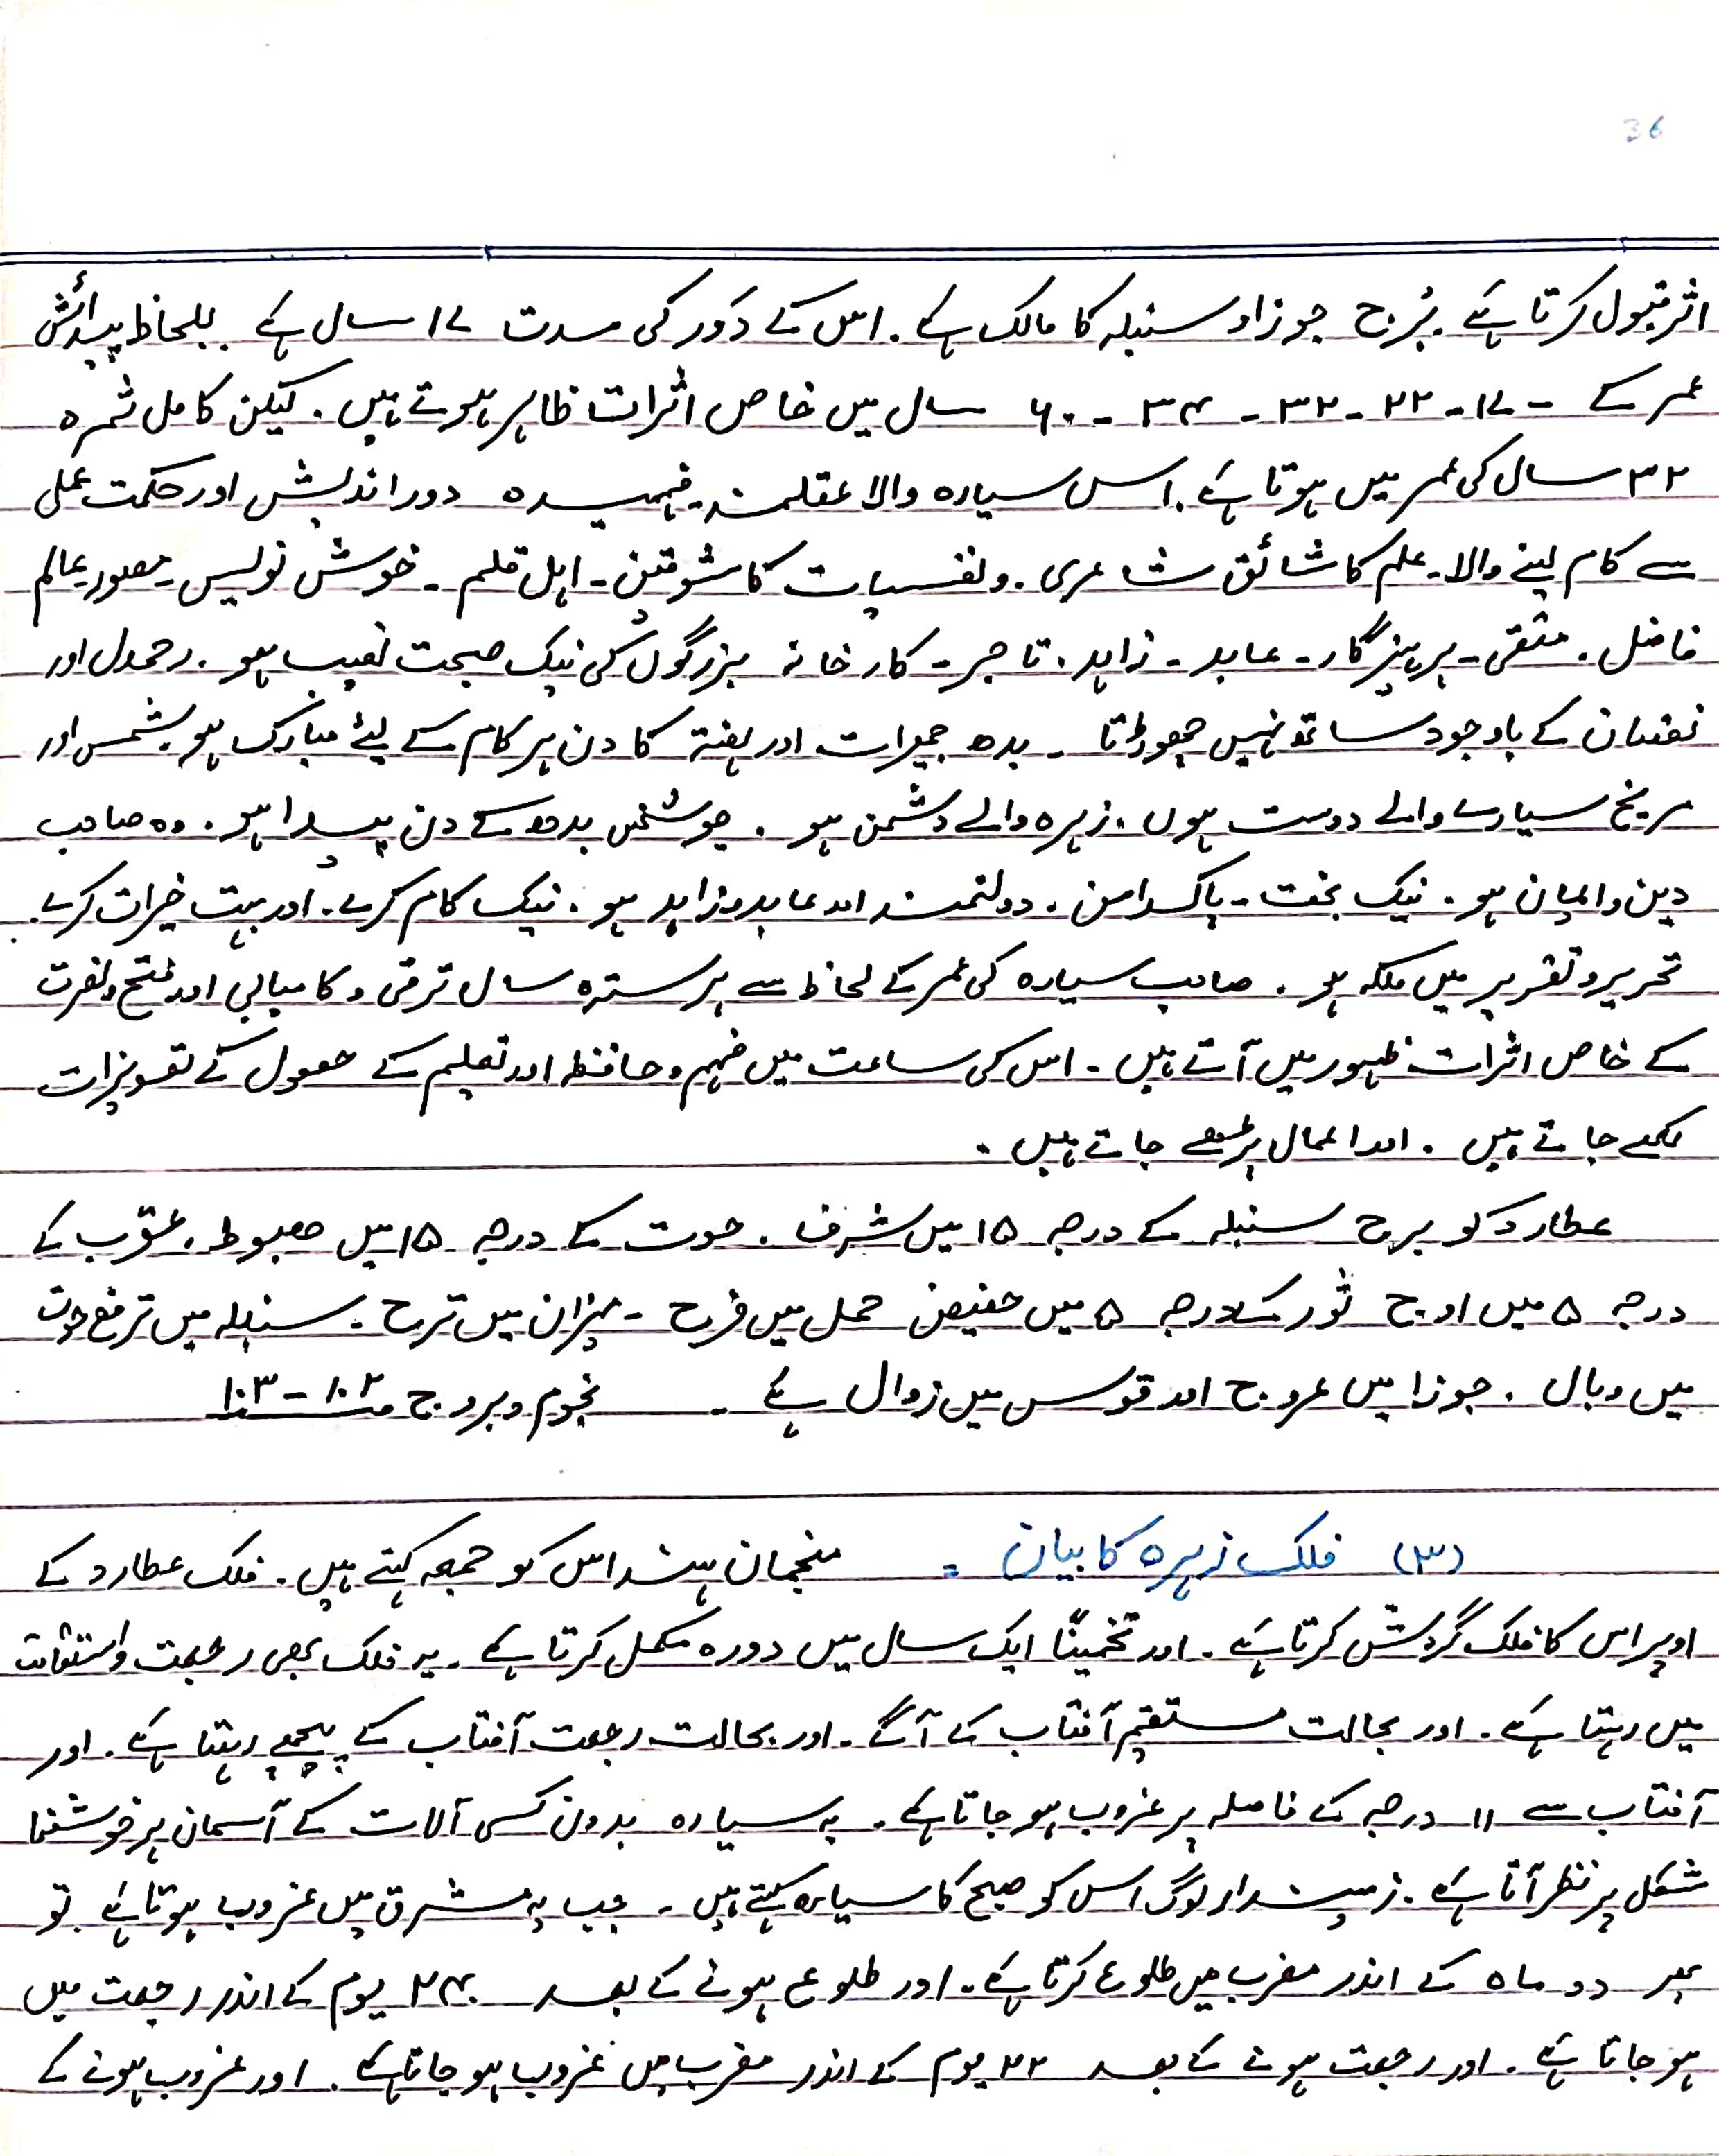 36
اثر قبول کرتا ہے۔ بُرج جوزا و سنبلہ کا مالک ہے۔ اس کے دَور کی مدت ۱۷ سال ہے۔ بلحاظ پیدائش
عمر کے ۔ ۱۷۔ ۲۲۔ ۳۲۔ ۳۴۔ ۶۰ سال میں خاص اثرات ظاہر ہوتے ہیں۔ لیکن کامل ثمرہ
۳۲ سال کی عمر میں ہوتا ہے۔ اس سیارہ والا عقلمند۔ فہمیدہ دور اندیش اور حکمت عملی
سے کام لینے والا۔ علم کا شائق شاعری۔ و نفسیات کا شوقین۔ اہل قلم۔ خوش نویس۔ مصور۔ عالم
فاضل۔ متقی۔ پرہیزگار۔ عابد۔ زاہد۔ تاجر۔ کارخانہ بزرگوں کی نیک صحبت نصیب ہو۔ رحمدل اور
نقصان کے باوجود ساتھ نہیں چھوڑتا۔ بدھ جمعرات اور ہفتہ کا دن ہر کام کے لیئے مبارک ہو۔ شمس اور
مریخ سیارے والے دوست ہوں۔ زہرہ والے دشمن ہو۔ جو شخص بدھ کے دن پیدا ہو۔ وہ صاحب
دین و ایمان ہو۔ نیک بخت۔ پاکدامن۔ دولتمند اور عابد و زاہد ہو۔ نیک کام کرے۔ اور بہت خیرات کرے۔
تحریر و تقریر میں ملکہ ہو۔ صاحب سیارہ کی عمر کے لحاظ سے ہر سترہ سال ترقی و کامیابی اور فتح و نصرت
کے خاص اثرات ظہور میں آتے ہیں۔ اس کی ساعت میں فہم و حافظہ اور تعلیم کے حصول کے تعویزات
لکھے جاتے ہیں۔ اور اعمال پڑھے جاتے ہیں۔
عطارد کو برج سنبلہ کے درجہ ۱۵ میں شرف۔ حوت کے درجہ ۱۵ میں ھبوط۔ عقرب کے
درجہ ۵ میں اوج ثور کے درجہ ۵ میں حضیض حمل میں فرح۔ میزان میں ترح۔ سنبلہ میں ترفع حوت
میں وبال۔ جوزا میں عروج اور قوس میں زوال ہے۔ نجوم و بروج صـ ۱۰۲ - ۱۰۳
(۳) فلک زہرہ کا بیان = منجمان ہند اس کو جمعہ کہتے ہیں۔ فلک عطارد کے
اوپر اس کا فلک گردش کرتا ہے۔ اور تخمیناً ایک سال میں دورہ مکمل کرتا ہے۔ یہ فلک بھی رجعت و استقامت
میں رہتا ہے۔ اور بحالت مستقیم آفتاب کے آگے۔ اور بحالت رجعت آفتاب کے پیچھے رہتا ہے۔ اور
آفتاب سے ۱۱ درجہ کے فاصلہ پر غروب ہو جاتا ہے۔ یہ سیارہ بدون کسی آلات کے آسمان پر خوشنما
شکل پر نظر آتا ہے۔ زمیندار لوگ اس کو صبح کا سیارہ کہتے ہیں۔ جب یہ مشرق میں غروب ہوتا ہے۔ تو
پھر دو ماہ کے اندر مغرب میں طلوع کرتا ہے۔ اور طلوع ہونے کے بعد ۲۴۰ یوم کے اندر رجعت میں
ہو جاتا ہے۔ اور رجعت ہونے کے بعد ۲۲ یوم کے اندر مغرب میں غروب ہو جاتا ہے۔ اور غروب ہونے کے